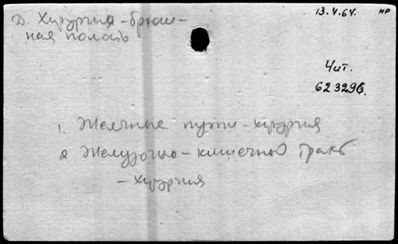 13.4.64. нр
Д. Хирургия - брюш-
ная полость
Чит.
623296.
1. Желчные пути - хирургия
2 Желудочно - кишечный тракт
- хирургия